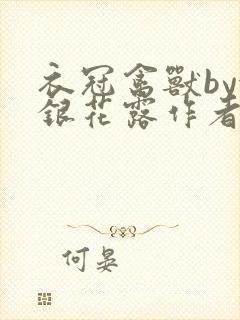 衣冠禽獸by
銀花露作者
何晏